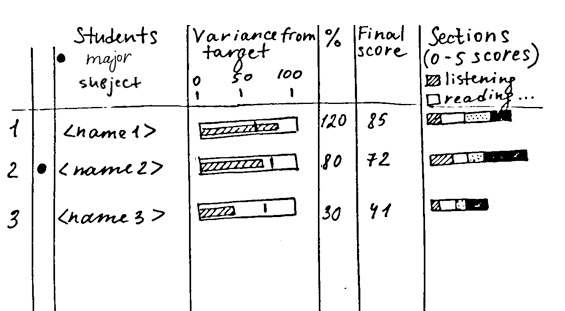 Students
• major
subject
Variance from
target
0 50 100
%
Final
score
Sections
(0-5 scores)
listening
reading...
1 <name 1> 120 85
2 • <name 2> 80 72
3 <name 3> 30 41